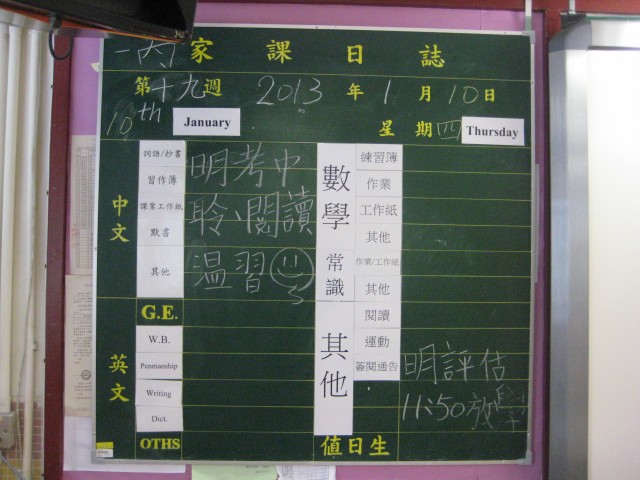 一丙 家課日誌
第十九週 2013年1月10日
10th January 星期四 Thursday
中文
詞語/抄書
習作簿
課業工作紙
默書
其他
明考中
聆、閱讀
温習
英文
G.E.
W.B.
Penmanship
Writing
Dict.
OTHS
數學
練習簿
作業
工作紙
其他
常識
作業/工作紙
其他
其他
閱讀
運動
簽閱通告
明評估
11:50放學
值日生